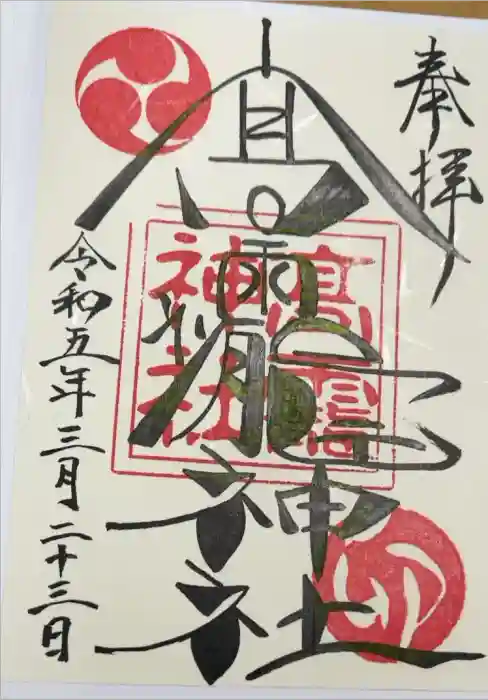 奉拝
高龗神社
神社
令和五年三月二十三日